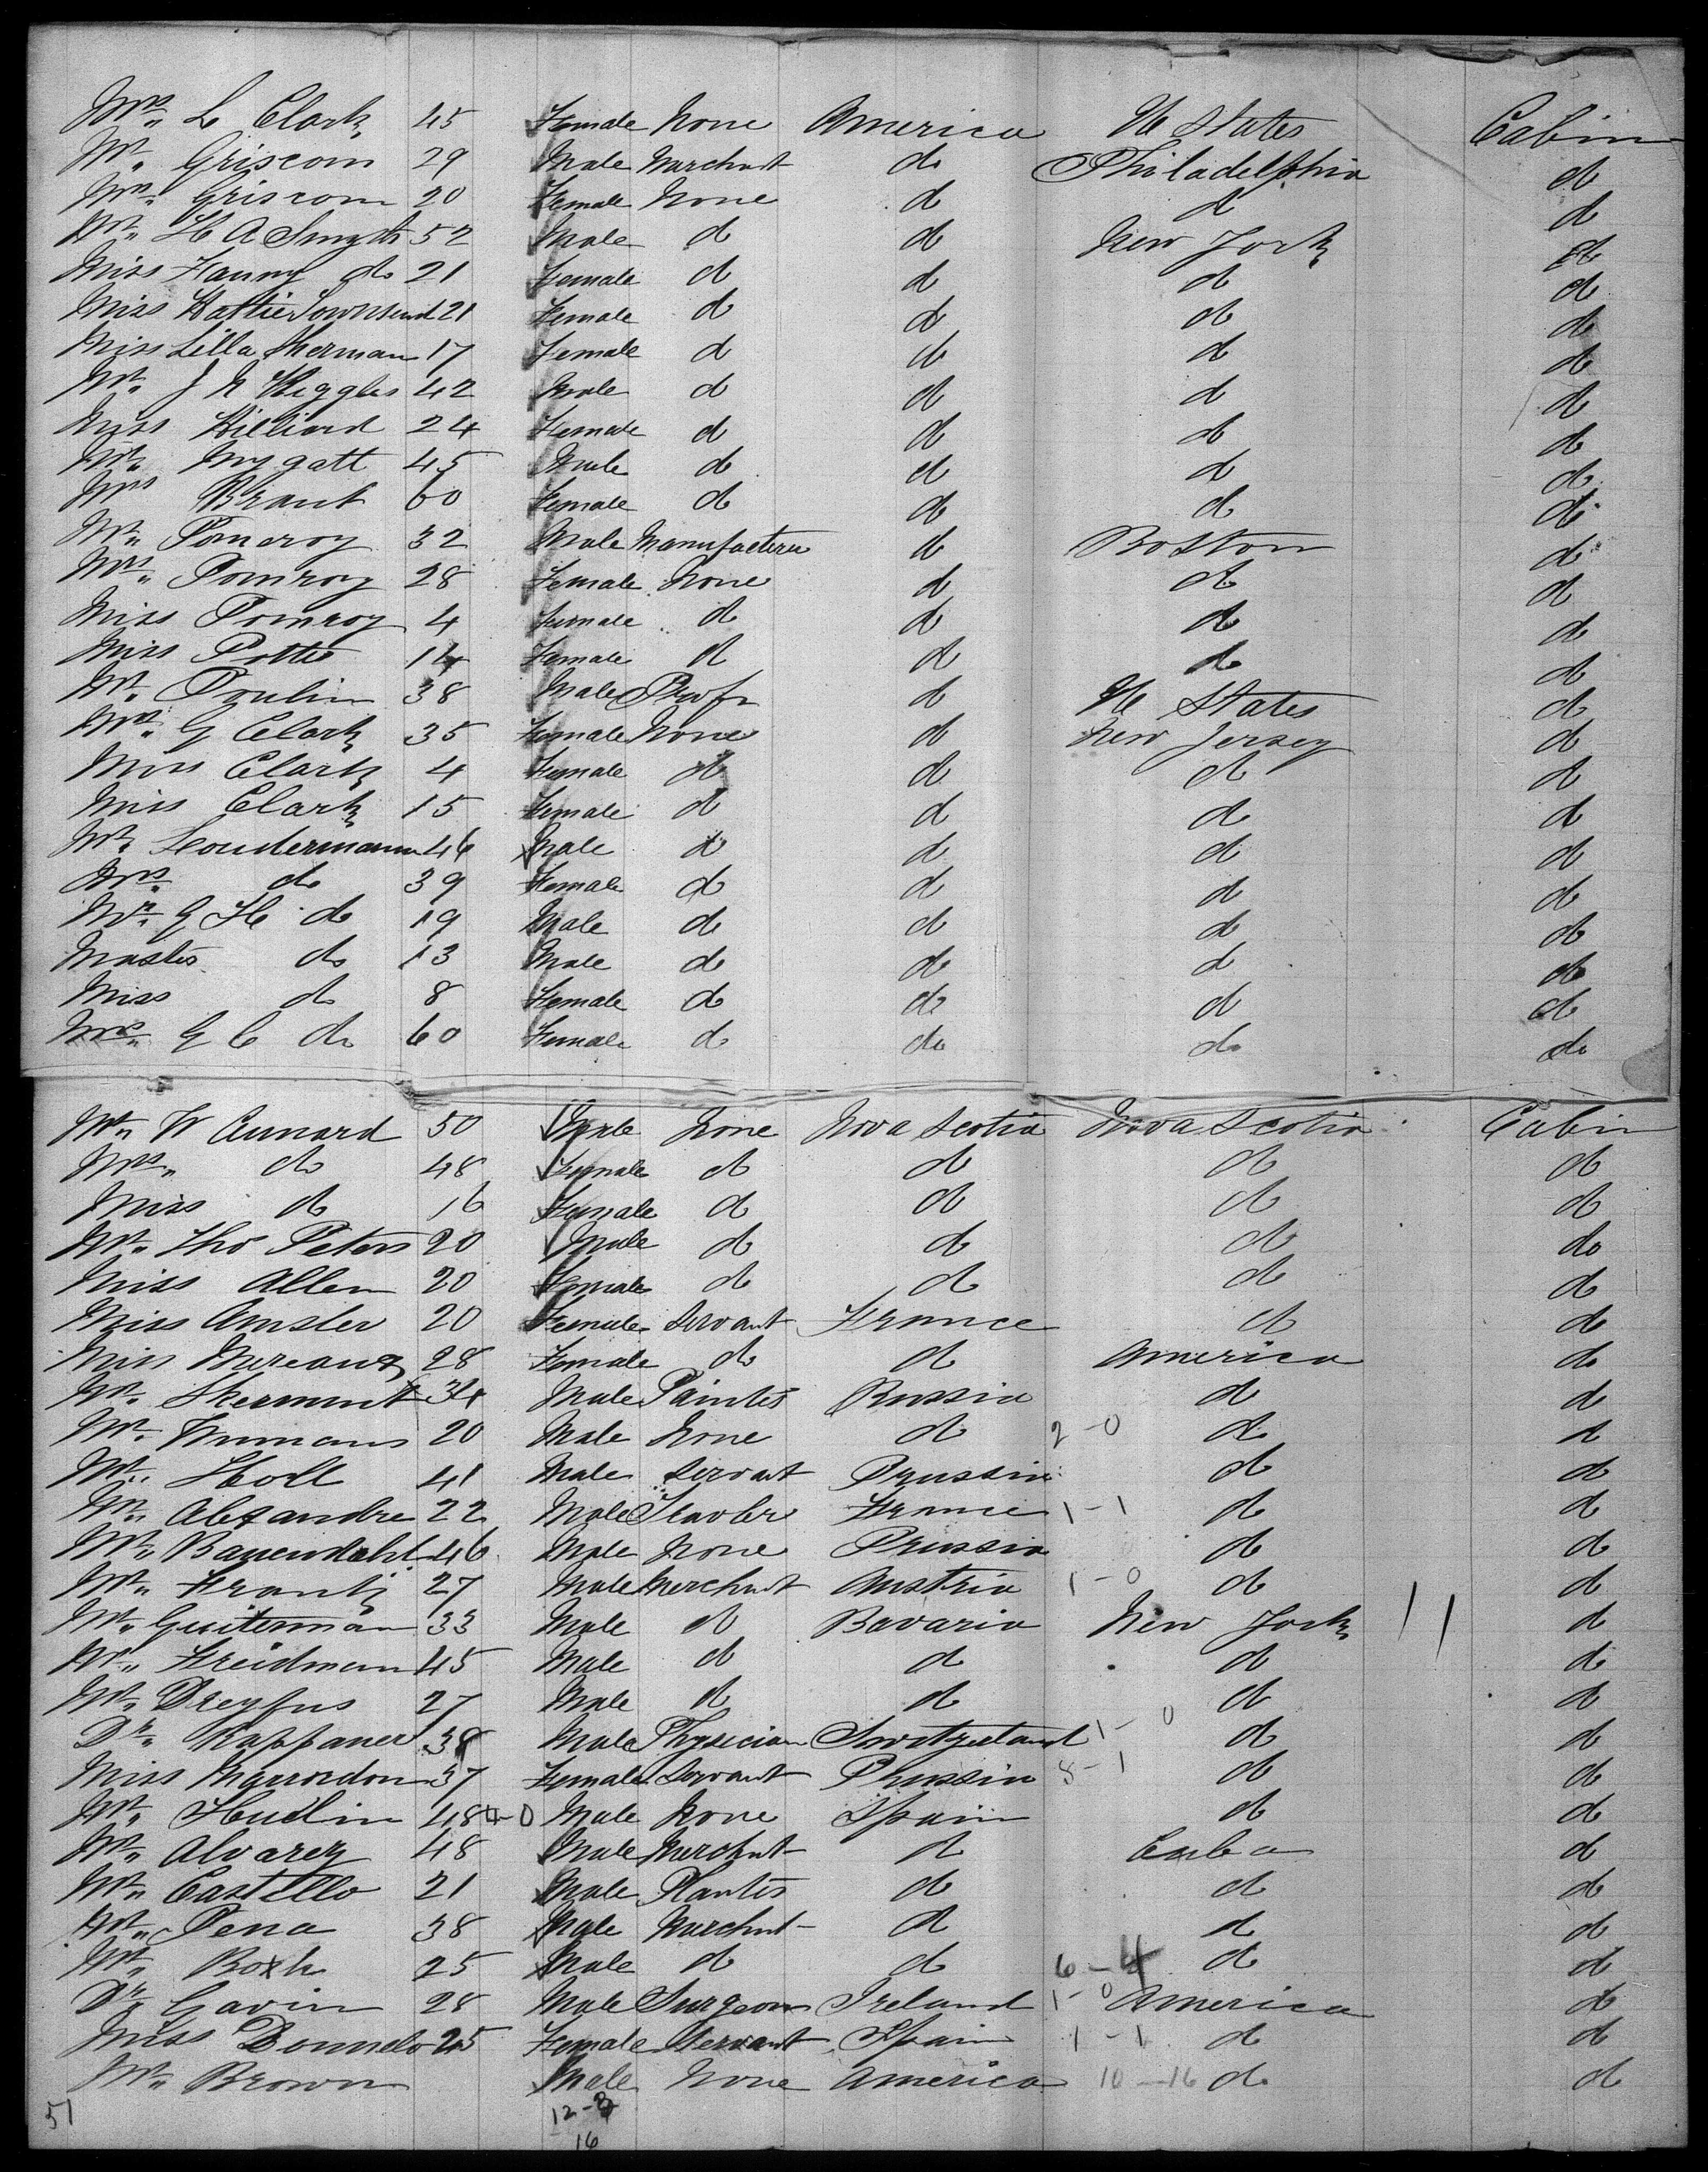 Mrs. L Clark 45 Female None America U States Cabin
Mr. Griscom 29 Male Merchant do Philadelphia do
Mrs. Griscom 20 Female None do do do
Mr. H A Smyth 52 Male do do New York do
Miss Fanny do 21 Female do do do do
Miss Hattie Townsend 21 Female do do do do
Miss Lilla Sherman 17 Female do do do do
Mr. J N 42 Male do do do do
Miss Hilliard 24 Female do do do do
Mr. Mygatt 45 Male do do do do
Mrs Brant 60 Female do do do do
Mr. Pomeroy 32 Male Manufacturer do Boston do
Mrs. Pomroy 28 Female None do do do
Miss Pomroy 4 Female do do do do
Miss Potter 14 Female do do do do
Mr. Poulin 38 Male Profr do U States do
Mrs. G Clark 35 Female None do New Jersey do
Miss Clark 4 Female do do do do
Miss Clark 15 Female do do do do
Mr. 46 Male do do do do
Mrs. do 39 Female do do do do
Mr. G H do 19 Male do do do do
Master do 13 Male do do do do
Miss do 8 Female do do do do
Mrs. G C do 60 Female do do do do
Mr. W Cunard 50 Male None Nova Scotia Nova Scotia Cabin
Mrs. do 48 Female do do do do
Miss do 16 Female do do do do
Mr. Thos Peters 20 Male do do do do
Miss Allen 20 Female do do do do
Miss Amsler 20 Female Servant France do do
Miss 28 Female do do America do
Mr. 34 Male Painter Russia do do
Mr. 20 Male None do 2-0 do do
Mr. Holl 41 Male Servant Prussia do do
Mr. Alexandre 22 Male France 1-1 do do
Mr. Bauendahl 46 Male None Prussia do do
Mr. Frank 27 Male Merchant Austria 1-0 do do
Mr. Guiterman 33 Male do Bavaria New York do
Mr. Freidman 45 Male do do do do
Mr. Dreyfus 27 Male do do do do
Dr. Kappaner 38 Male Physician Switzerland 1-0 do do
Miss 37 Female Servant Prussia 8-1 do do
Mr. 48 4-0 Male None Spain do do
Mr. Alvarez 48 Male Merchant do Cuba do
Mr. Castillo 21 Male Planter do do do
Mr. Pena 38 Male Merchant do do do
Mr. 25 Male do do 6-4 do do
Dr. Gavin 28 Male Surgeon Ireland 1-0 America do
Miss 25 Female Servant Spain 1-1 do do
Mr. Brown Male None America 10-16 do do
51 12-8
16